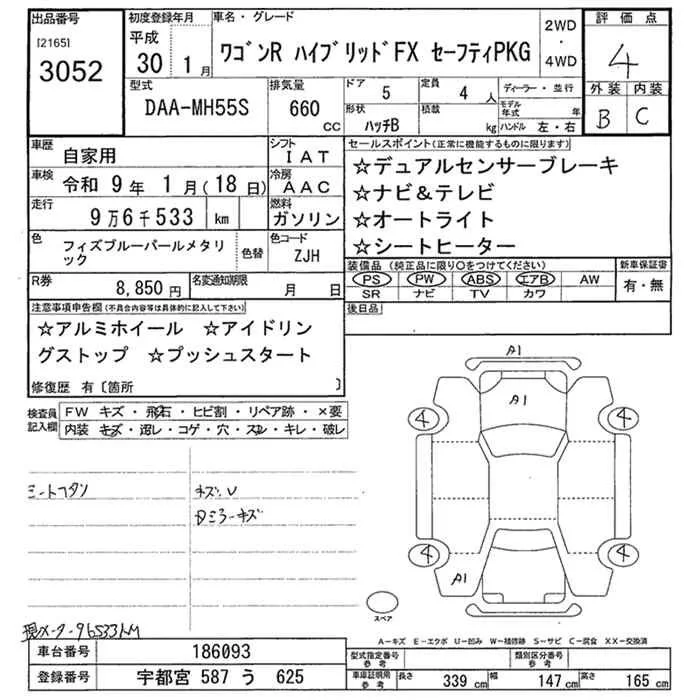 出品番号
[2165]
3052
初度登録年月
平成
30 1月
車名・グレード
ワゴンR ハイブリッドFX セーフティPKG
2WD
・
4WD
評価点
4
外装 内装
B C
型式
DAA-MH55S
排気量
660
CC
ドア
5
定員
4 人
形状
ハッチB
積載
kg
ディーラー・並行
モデル年式 年
ハンドル 左・右
車歴
自家用
シフト
IAT
車検
令和 9年 1月(18日)
冷房
AAC
走行
9万6千533 km
燃料
ガソリン
色
フィズブルーパールメタリ
ック
色替
色コード
ZJH
R券
8,850円
名変通知期限
月 日
セールスポイント(正常に機能するものに限ります)
☆デュアルセンサーブレーキ
☆ナビ&テレビ
☆オートライト
☆シートヒーター
装備品 (純正品に限り○をつけてください)
PS PW ABS エアB AW
SR ナビ TV カワ
新車保証書
有・無
後日品
注意事項申告欄(不具合内容等は具体的に記入して下さい)
☆アルミホイール ☆アイドリン
グストップ ☆プッシュスタート
修復歴 有〔箇所 〕
検査員
記入欄
FW キズ・飛石・ヒビ割・リペア跡・×要
内装 キズ・汚レ・コゲ・穴・スレ・キレ・破レ
シートフタン
キズ.U
ミラーキズ
現メーター96533kM
A1
A1
4
4
4
4
A1
スペア
A-キズ E-エクボ U-凹み W-補修跡 S-サビ C-腐食 XX-交換済
車台番号
186093
登録番号
宇都宮 587 う 625
型式指定番号
参考
類別区分番号
参考
車庫証明用
参考
長さ 339 cm
幅 147 cm
高さ 165 cm